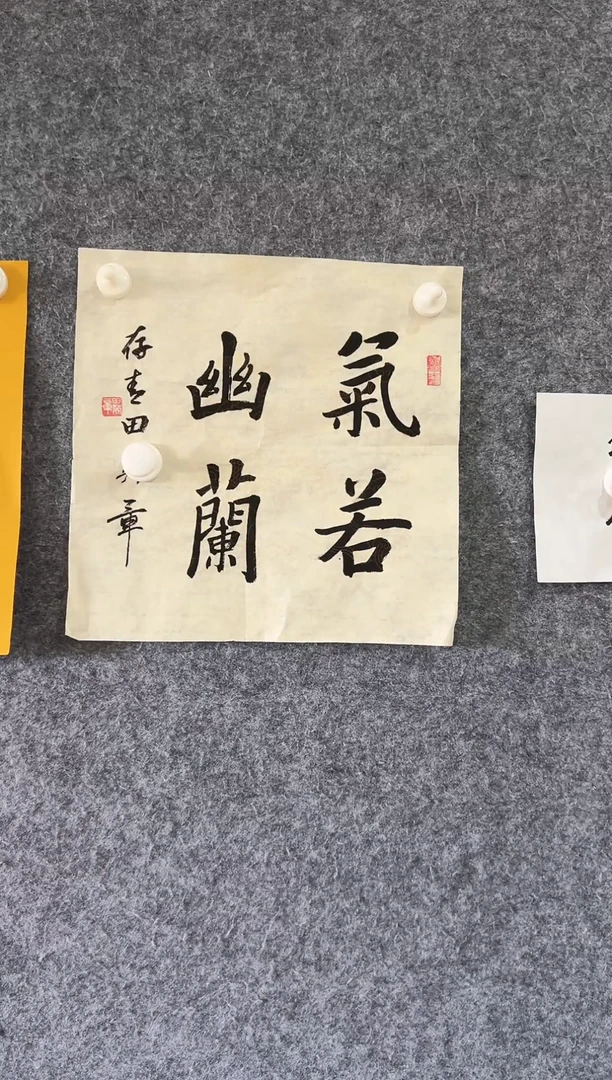 氣若
幽蘭
存志田
章